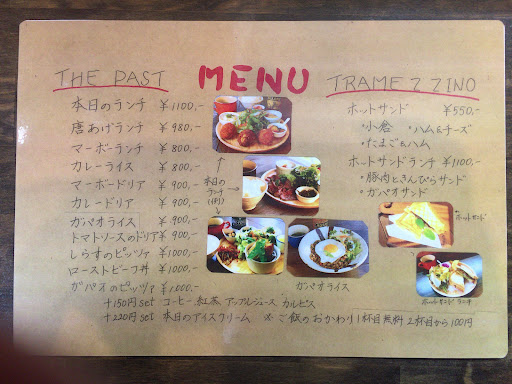 THE PAST
MENU
TRAMEZZINO
本日のランチ ¥1100,-
唐あげランチ ¥980,-
マーボーランチ ¥800,-
カレーライス ¥800,-
マーボードリア ¥900,-
カレードリア ¥900,-
ガパオライス ¥900,-
トマトソースのドリア ¥900,-
しらすのピッツァ ¥1000,-
ローストビーフ丼 ¥1000,-
ガパオのピッツァ ¥1000,-
+150円set コーヒー 紅茶 アップルジュース カルピス
+220円set 本日のアイスクリーム ※ご飯のおかわり1杯目無料 2杯目から100円
↑
本日の→
ランチ
(例)
↓
ガパオライス
ホットサンド ¥550,-
・小倉 ・ハム&チーズ
・たまご&ハム
ホットサンドランチ ¥1100,-
・豚肉ときんぴらサンド
・ガパオサンド
ホットサンド
ホットサンド ランチ